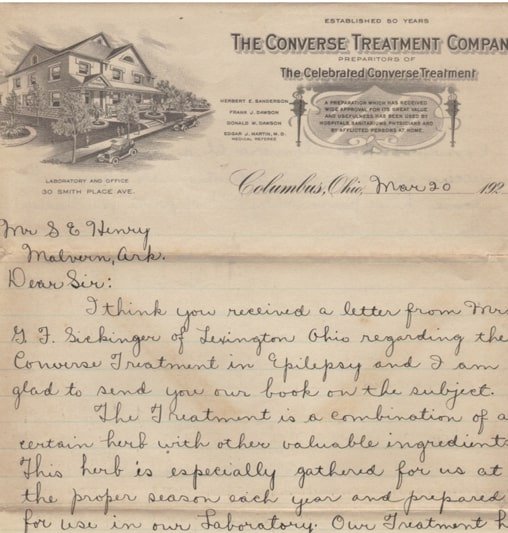 ESTABLISHED 50 YEARS
THE CONVERSE TREATMENT COMPAN
PREPARITORS OF
The Celebrated Converse Treatment
HERBERT E. SANDERSON
FRANK J. DAWSON
DONALD M. DAWSON
EDGAR J. MARTIN, M.D.
MEDICAL REFEREE
A PREPARATION WHICH HAS RECEIVED
WIDE APPROVAL FOR ITS GREAT VALUE
AND USEFULNESS HAS BEEN USED BY
HOSPITALS SANITARIUMS PHYSICIANS AND
BY AFFLICTED PERSONS AT HOME
LABORATORY AND OFFICE
30 SMITH PLACE AVE.
Columbus, Ohio, Mar 20 192
Mr S E Henry
Malvern, Ark.
Dear Sir:
I think you received a letter from Mr
G F. Sickinger of Lexington Ohio regarding the
Converse Treatment in Epilepsy and I am
glad to send you our book on the subject.
The Treatment is a combination of a
certain herb with other valuable ingredient
This herb is especially gathered for us at
the proper season each year and prepared
for use in our Laboratory. Our Treatment h